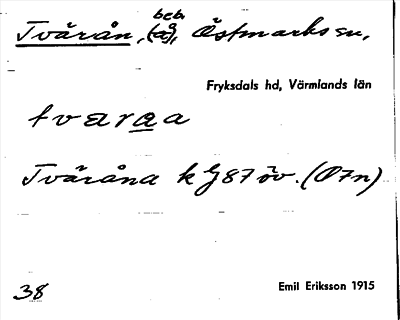 Tvärån, (å), bebı Östmarks sn,
Fryksdals hd, Värmlands län
tvaraa
Tväråna k G87 öv. (O7n)
38
Emil Eriksson 1915